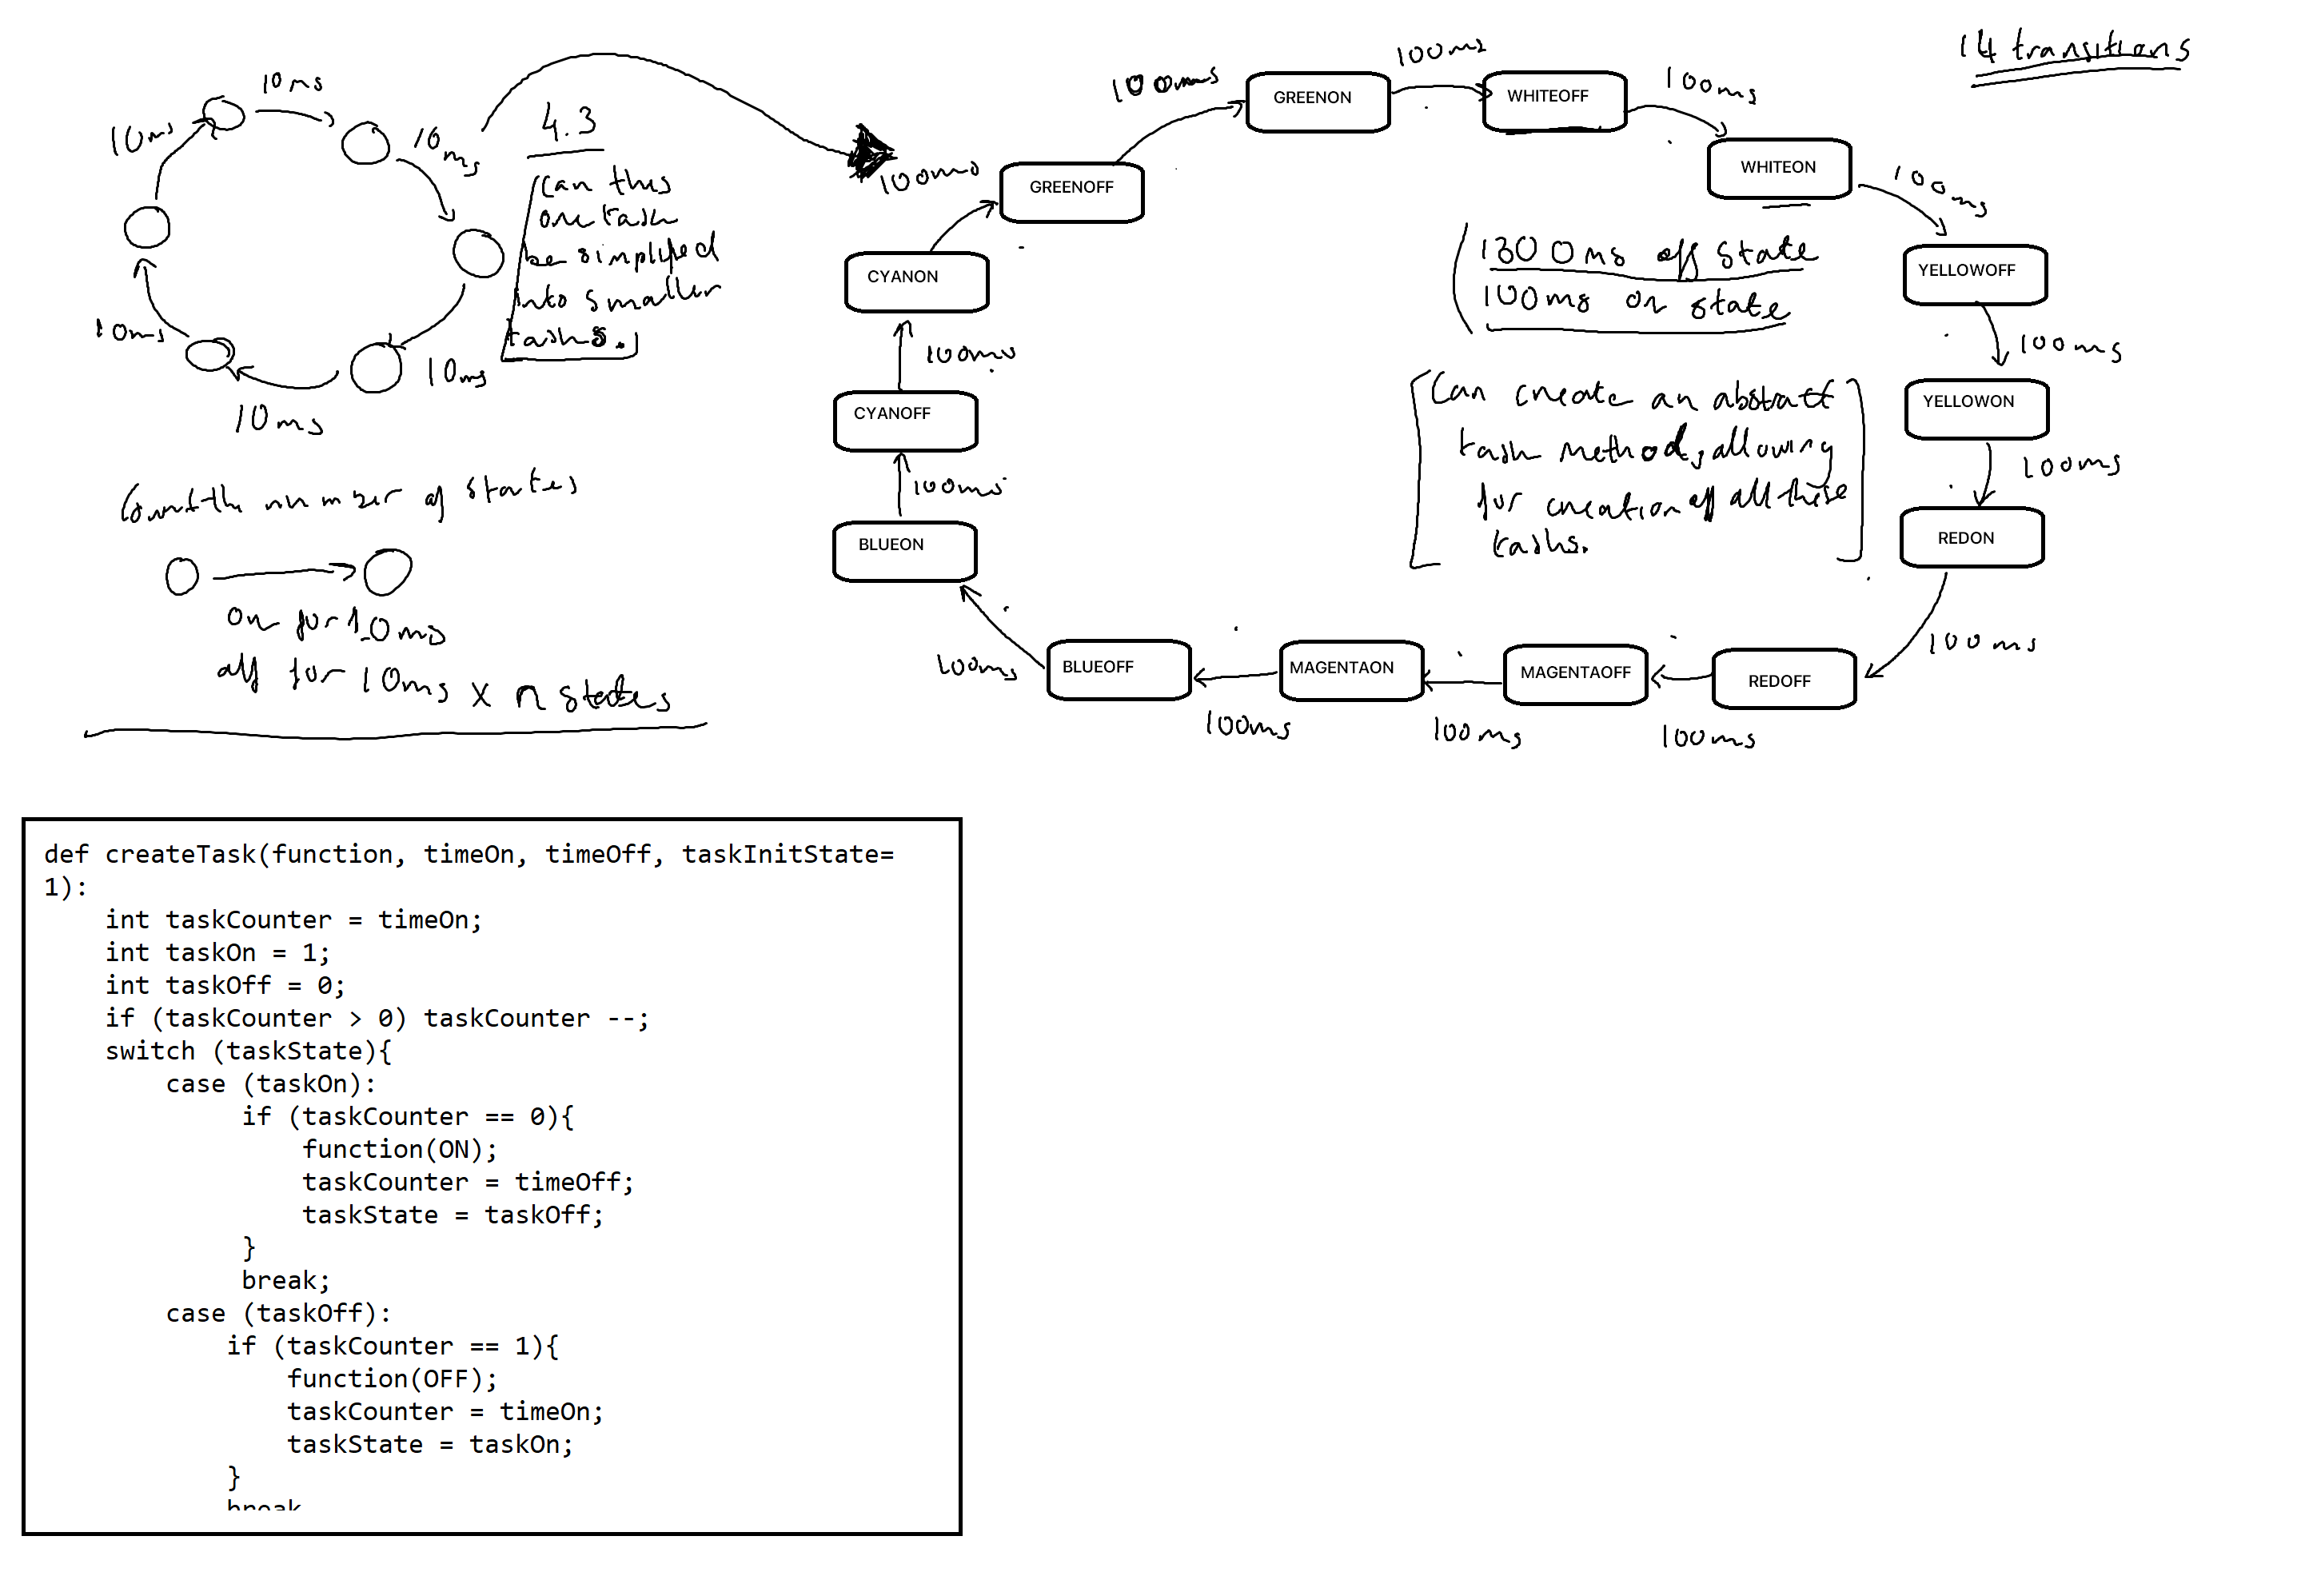 14 transitions
10ms
10ms
10ms
10ms
10ms
10ms
4.3
Can this
one task
be simplified
into smaller
tasks.
Count the number of states
on for 10ms
off for 10ms x n states
100ms
GREENOFF
100ms
GREENON
100ms
WHITEOFF
100ms
WHITEON
100ms
YELLOWOFF
100ms
YELLOWON
100ms
REDON
100ms
REDOFF
100ms
MAGENTAOFF
100ms
MAGENTAON
100ms
BLUEOFF
100ms
BLUEON
100ms
CYANOFF
100ms
CYANON
1300ms off state
100ms on state
Can create an abstract
task method, allowing
for creation of all these
tasks.
def createTask(function, timeOn, timeOff, taskInitState=
1):
int taskCounter = timeOn;
int taskOn = 1;
int taskOff = 0;
if (taskCounter > 0) taskCounter --;
switch (taskState){
case (taskOn):
if (taskCounter == 0){
function(ON);
taskCounter = timeOff;
taskState = taskOff;
}
break;
case (taskOff):
if (taskCounter == 1){
function(OFF);
taskCounter = timeOn;
taskState = taskOn;
}
break